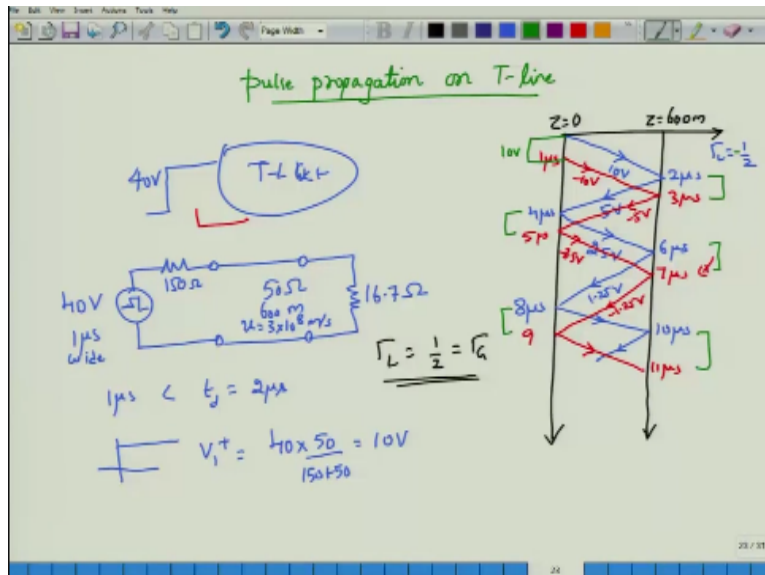 File Edit View Insert Actions Tools Help
Page Width
B I
pulse propagation on T-line
40V
T-L Ckt
40V
1μs
wide
150Ω
50Ω
600 m
u = 3×10⁸ m/s
16.7Ω
Γ_L = 1/2 = Γ_G
1μs < t_d = 2μs
V₁⁺ = 40×50 / 150+50 = 10V
z=0
z=600m
Γ_L=-1/2
10V
1μs
10V
-10V
2μs
3μs
4μs
5V
-5V
5μs
6μs
7μs
1.25V
-1.25V
8μs
9
10μs
11μs
23 / 31
23